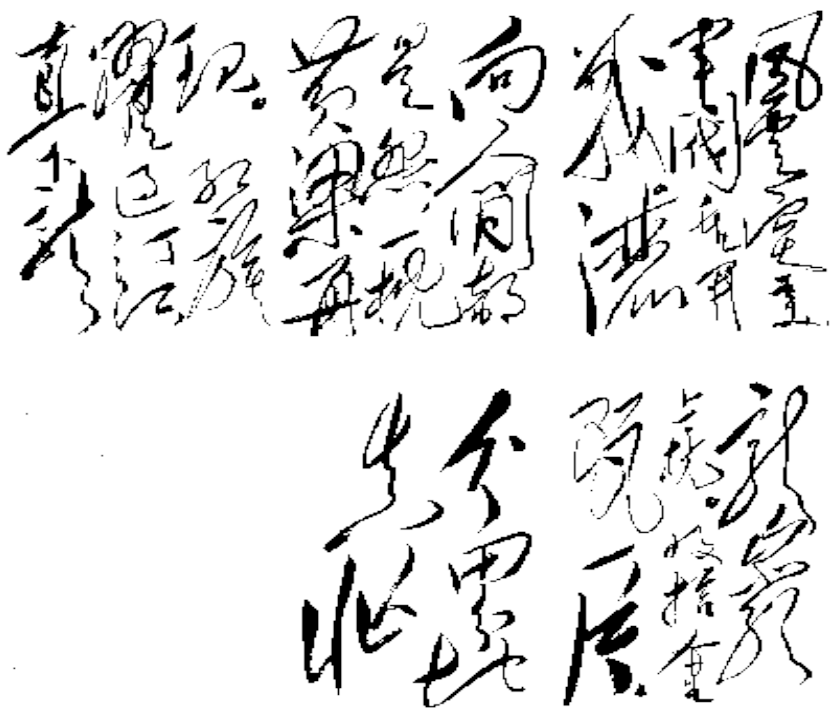 風雲突变
軍阀重开
战洒
向人间都
是怨一枕
黄粱再
现。红旗
躍过汀江
直下
龍岩
上杭。收拾金
瓯一片。
分田分地
真忙